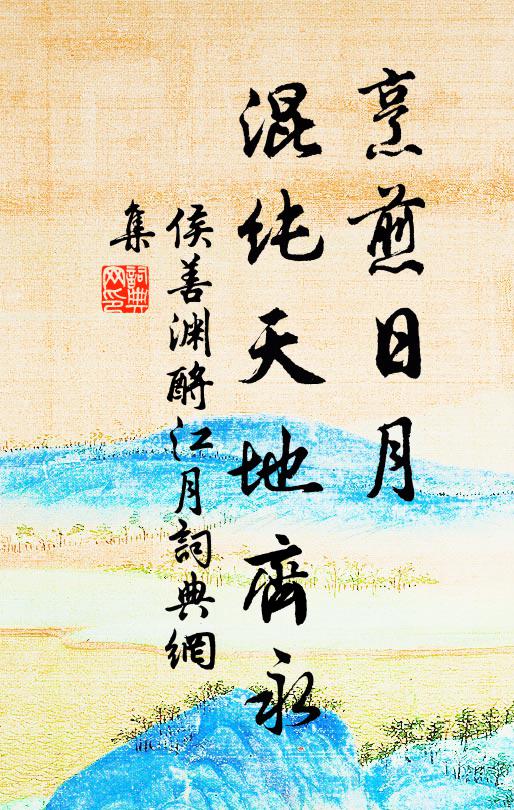 烹煎日月
混纯天地齊永
侯善渊酹江月詞典網
集
詞典
网印